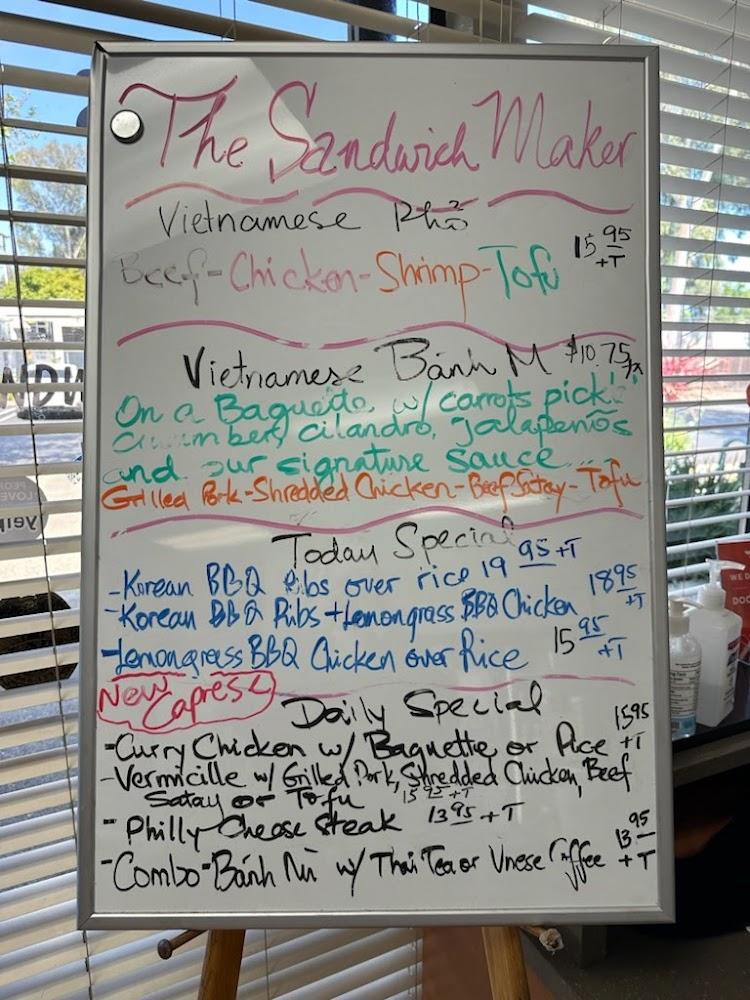 The Sandwich Maker
Vietnamese Phở
15 95 +T
Beef-Chicken-Shrimp-Tofu
Vietnamese Bánh M $10.75
On a Baguette, w/ carrots pick
cucumber, cilandro, jalapenõs
and our signature sauce...
Grilled Pork-Shredded Chicken-Beef Satay-Tofu
Today Special
-Korean BBQ Ribs over rice 19 95 +T
-Korean BBQ Ribs + Lemongrass BBQ Chicken 18 95 +T
-Lemongrass BBQ Chicken over Rice 15 95 +T
New Caprese
Daily Special
-Curry Chicken w/ Baguette or Rice 15 95 +T
-Vermicille w/ Grilled Pork, Shredded Chicken, Beef
Satay or Tofu 15 95 +T
-Philly Cheese Steak 13 95 +T
-Combo-Bánh Mì w/ Thai Tea or Vnese Coffee 13 95 +T
PEOPLE
LOVE
yelp
WED
DOC